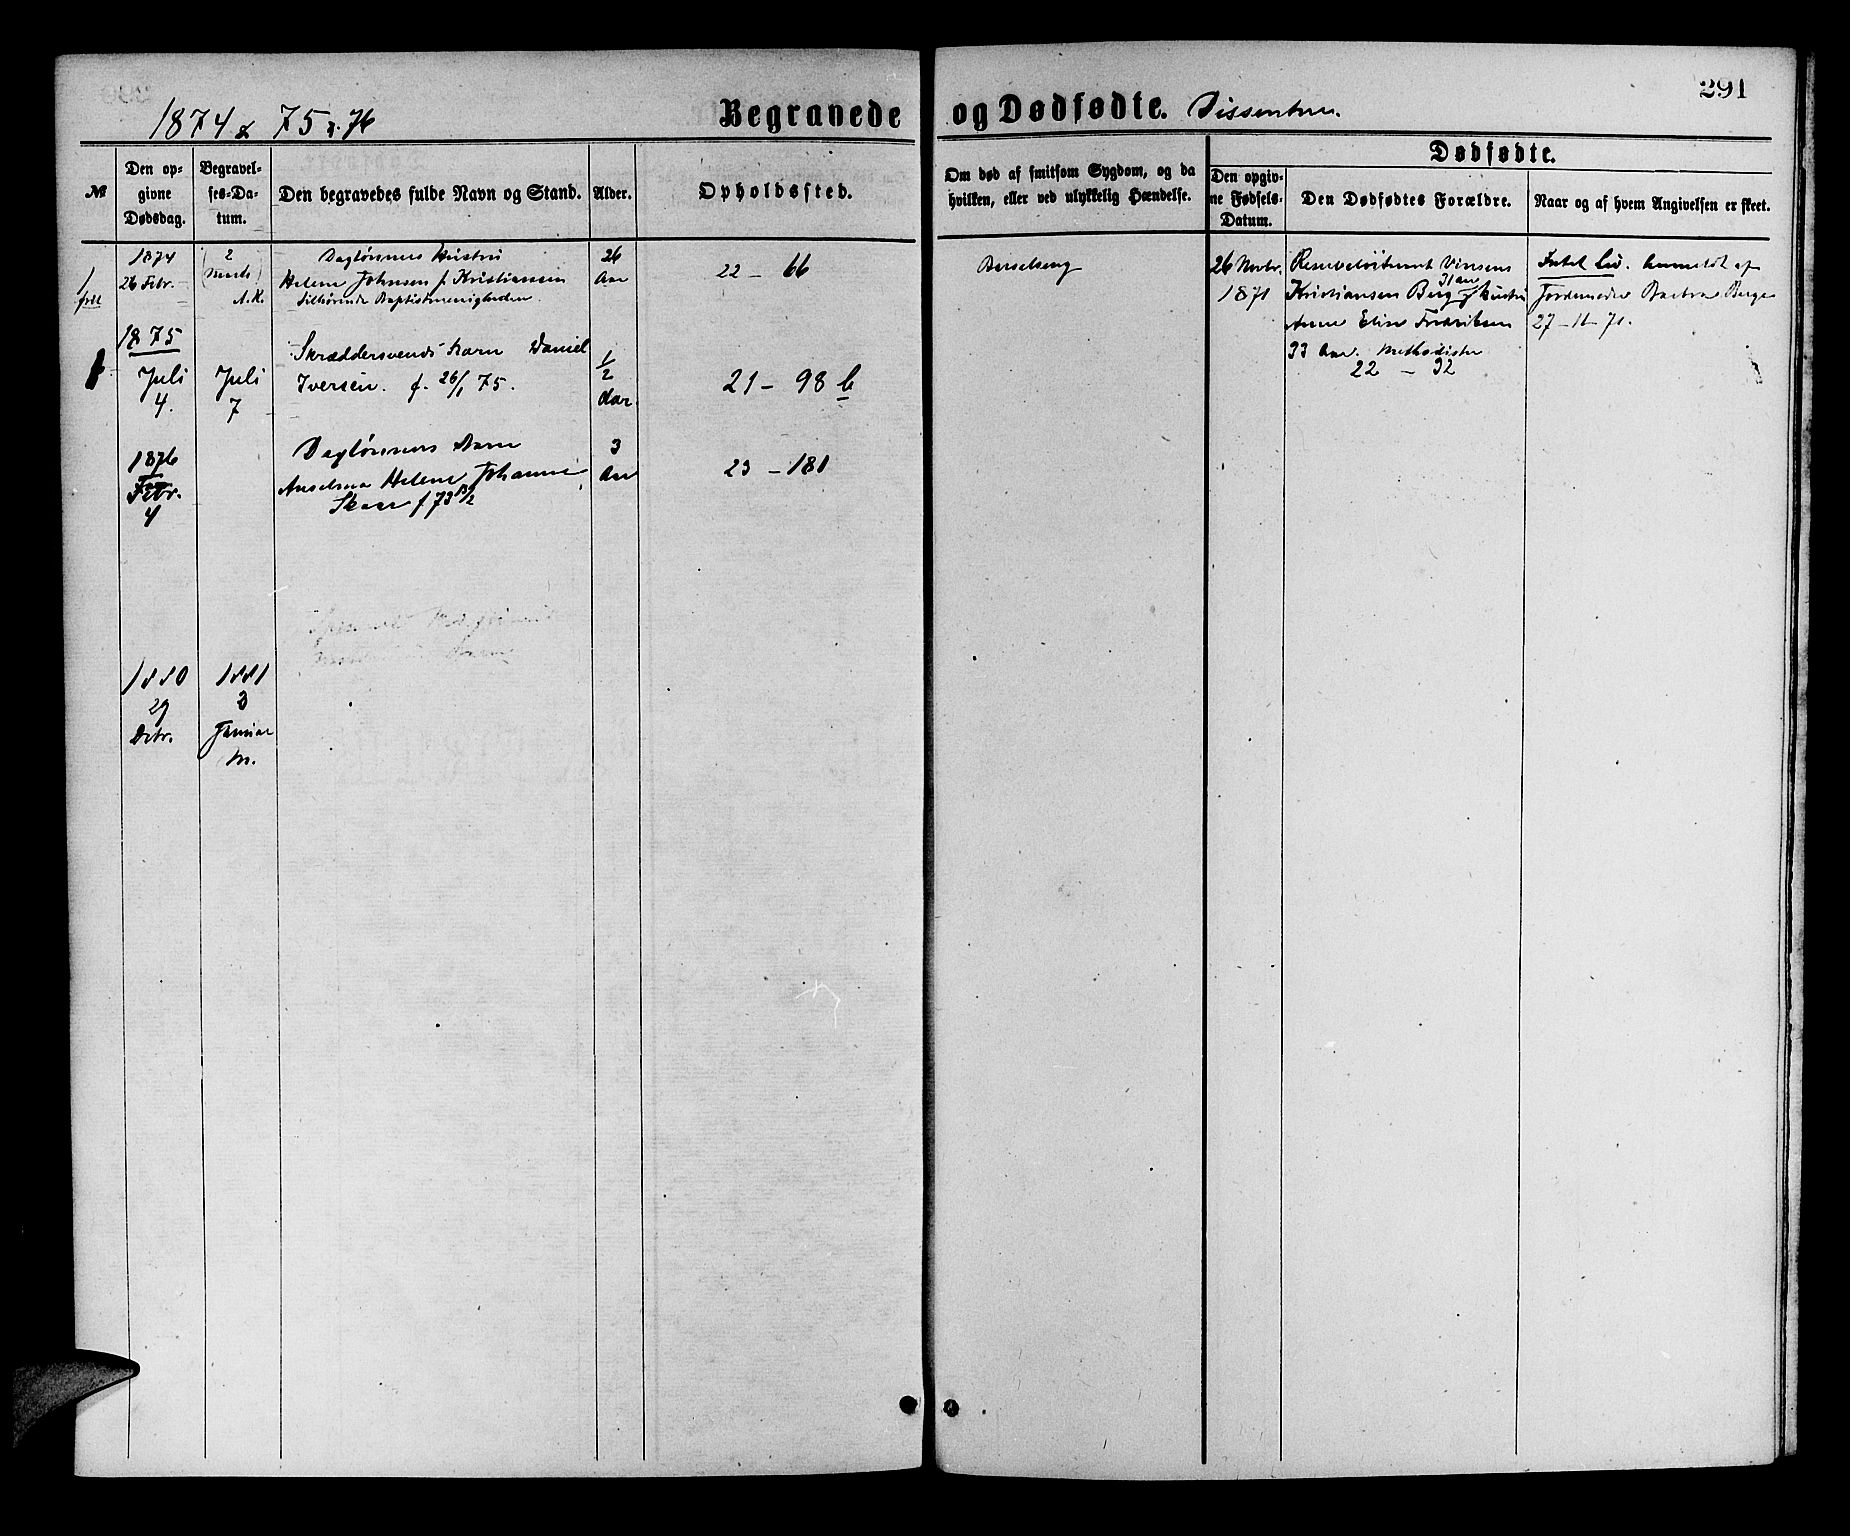 291
1874 & 75 & 76
Begravede og Dødfødte. Dissentere.
№
Den opgivne Dødsdag.
Begravelses-Datum.
Den begravedes fulde Navn og Stand.
Alder.
Opholdssted.
Om død af smitsom Sygdom, og da hvilken, eller ved ulykkelig Hændelse.
Dødfødte.
Den opgivne Fødsels-Datum.
Den Dødfødtes Forældre.
Naar og af hvem Angivelsen er skeet.
1
1874
26 Febr.
2
Marts
A.K.
Dagløners Hustru
Helene Johnsen f. Kristiansen
tilhørende Baptistmenigheden.
26
Aar
22 – 66
Barselseng
26 Novbr.
1871
Kristiansen Berg
31 Aar
Hustru
Anne Elise Fredriksen
33 Aar. Methodister
22 – 32
Intet Liv. Anmeldt af
Jordemoder
27–11–71.
1875
Juli
4.
Juli
7
Skræddersvends Barn Daniel
Iversen. f. 26/1 75.
1/2
Aar.
21 – 98 b
1876
Febr.
4
Dagløners Barn
Helene Johanne
f 73
3
Aar
23 – 181
1880
29
Dcbr.
1881
3
Januar
M.